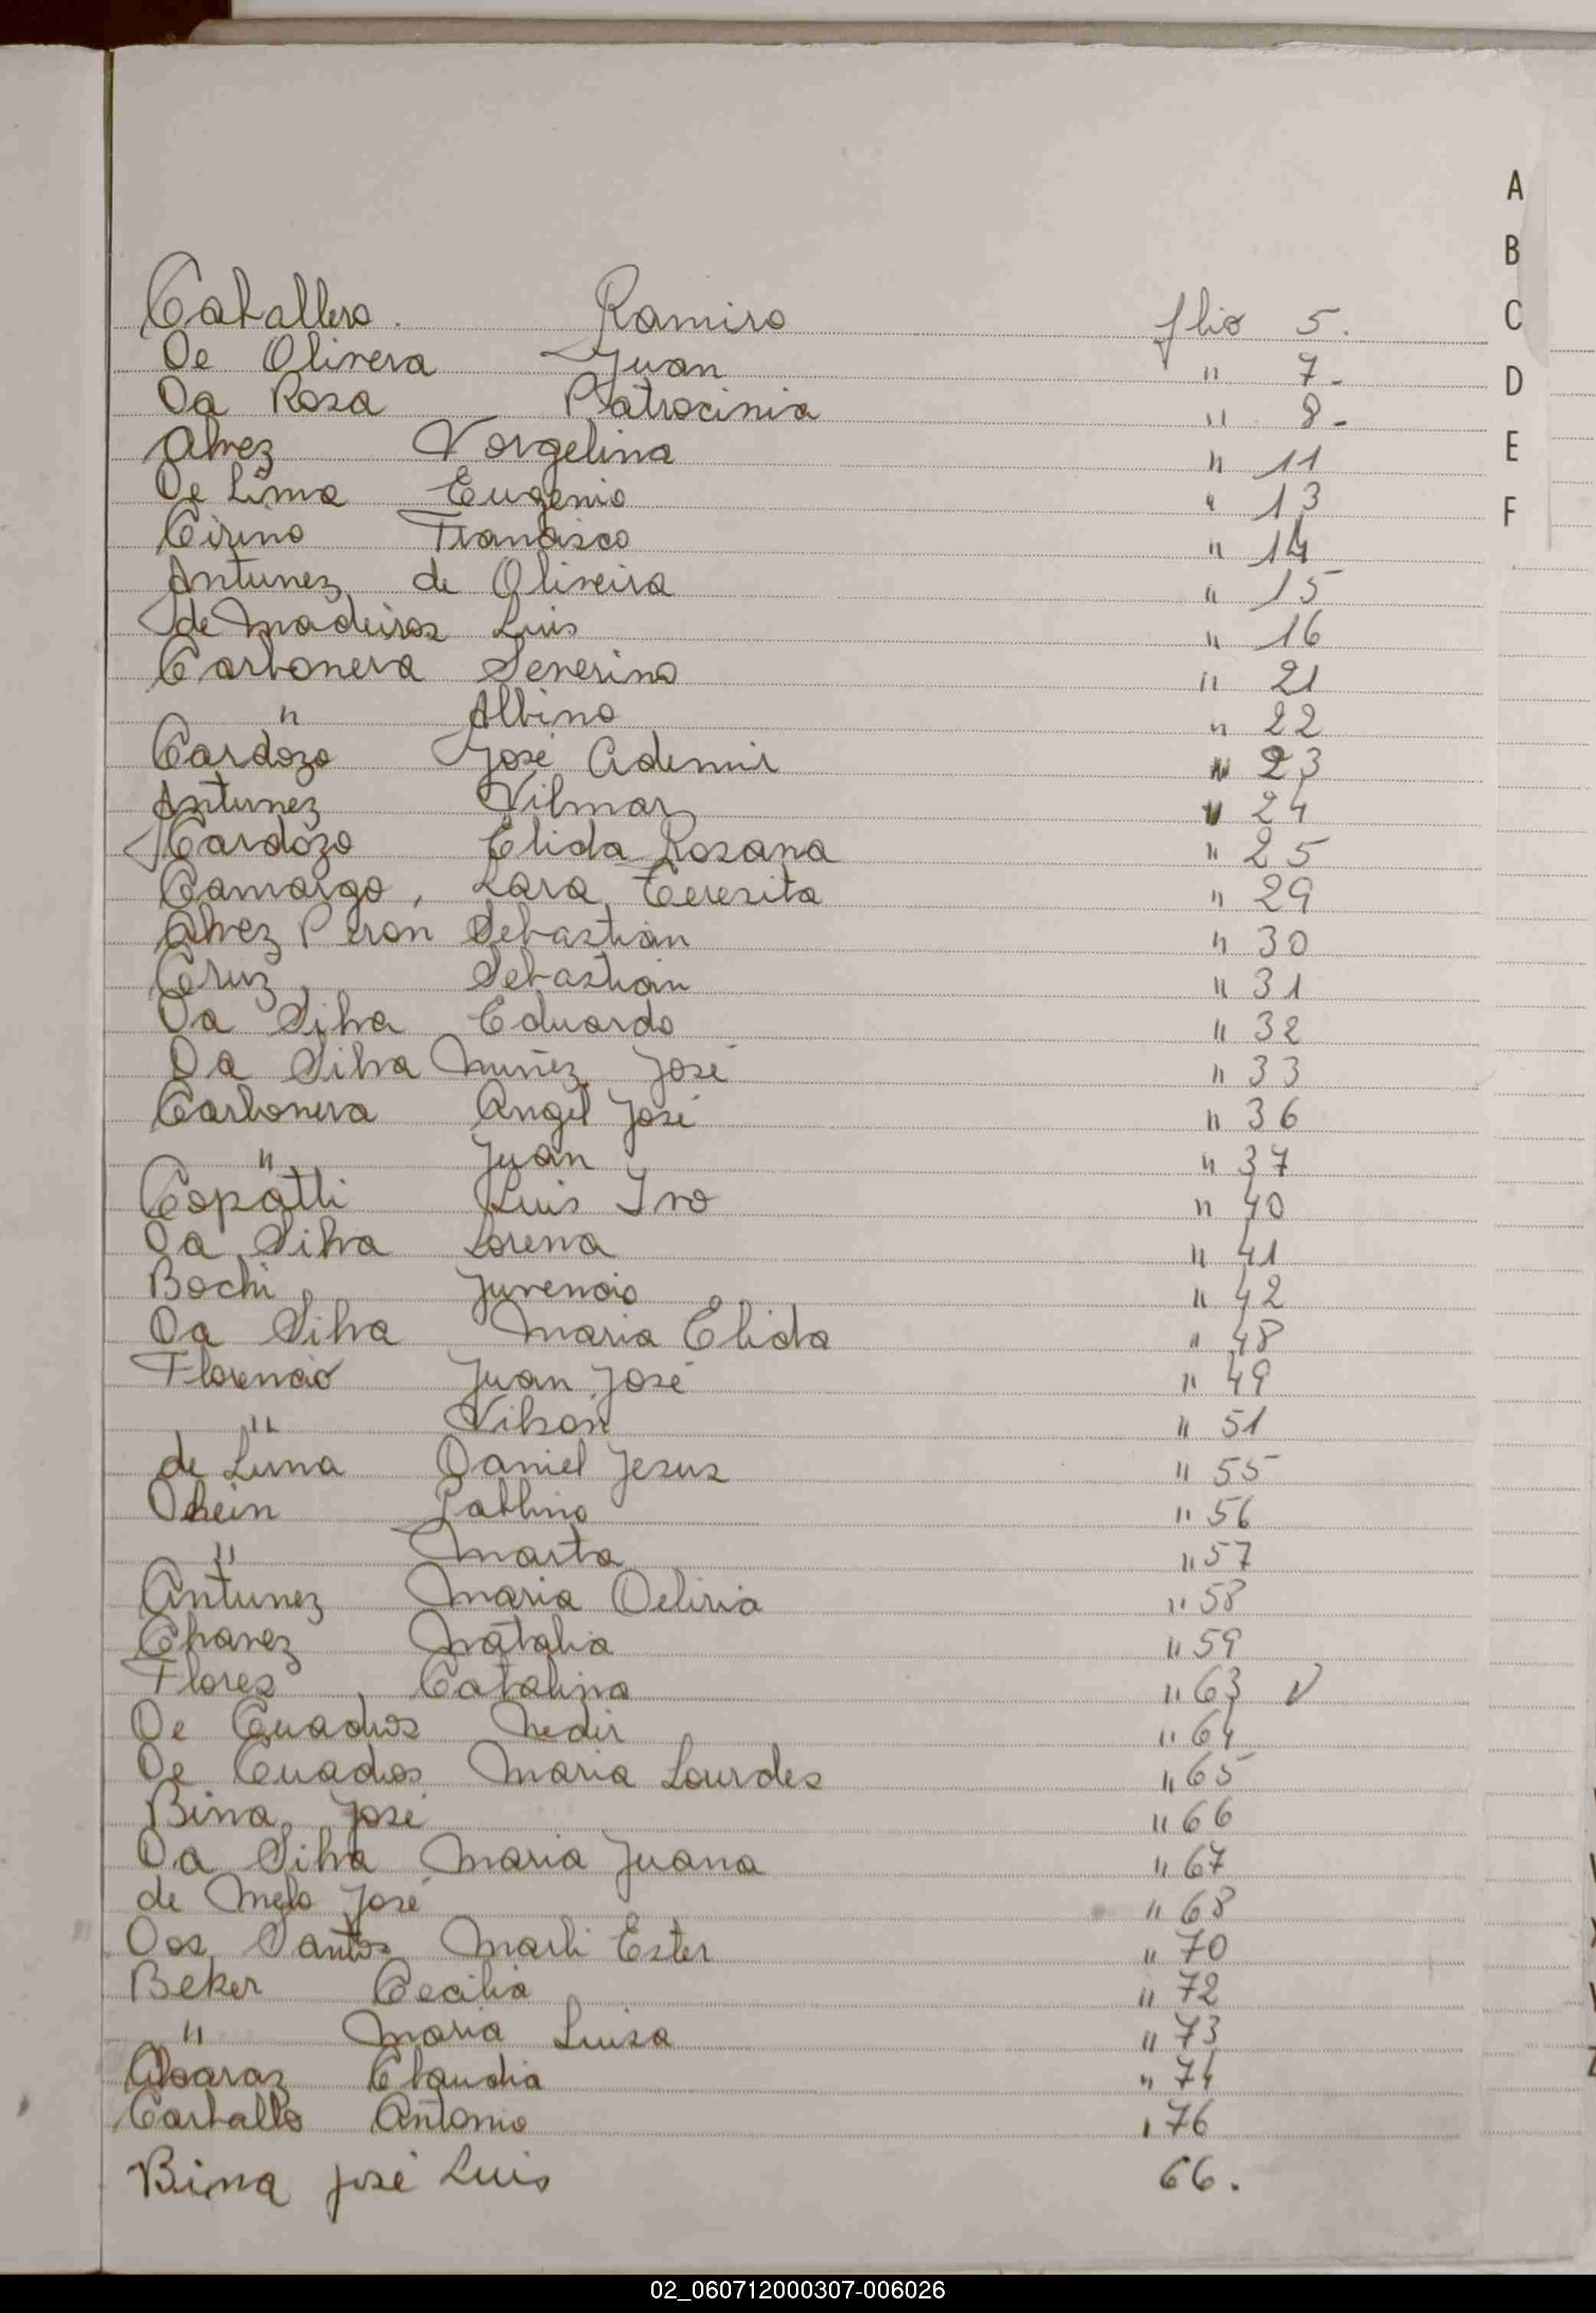 Caballero. Ramiro flio 5.
De Olivera Juan " 7-
Da Rosa Patrocinia " 8-
Alvez Vorgelina " 11
De Lima Eugenio " 13
Cirino Francisco " 14
Antunez de Oliveira " 15
de Madeiros Luis " 16
Carbonera Severino " 21
" Albino " 22
Cardozo José Ademir " 23
Antunez Vilmar " 24
Cardozo Elida Rosana " 25
Camargo, Lara Teresita " 29
Alvez Peron Sebastián " 30
Cruz Sebastián " 31
Da Silva Eduardo " 32
Da Silva Nuñez José " 33
Carbonera Angel José " 36
" Juan " 37
Copatti Luis Ivo " 40
Da Silva Lorena " 41
Bochi Juvencio " 42
Da Silva Maria Elida " 48
Florencio Juan José " 49
" Vilson " 51
de Lima Daniel Jesus " 55
Dhein Pablino " 56
" Marta " 57
Antunez Maria Deliria " 58
Chavez Natalia " 59
Flores Catalina " 63 V
De Cuadros Nedir " 64
De Cuados Maria Lourdes " 65
Bina José " 66
Da Silva Maria Juana " 67
de Melo José " 68
Dos Santos Marli Ester " 70
Beker Cecilia " 72
" Maria Luisa " 73
Claudia " 74
Carballo Antonio " 76
Bina José Luis 66.
A
B
C
D
E
F
02_060712000307-006026